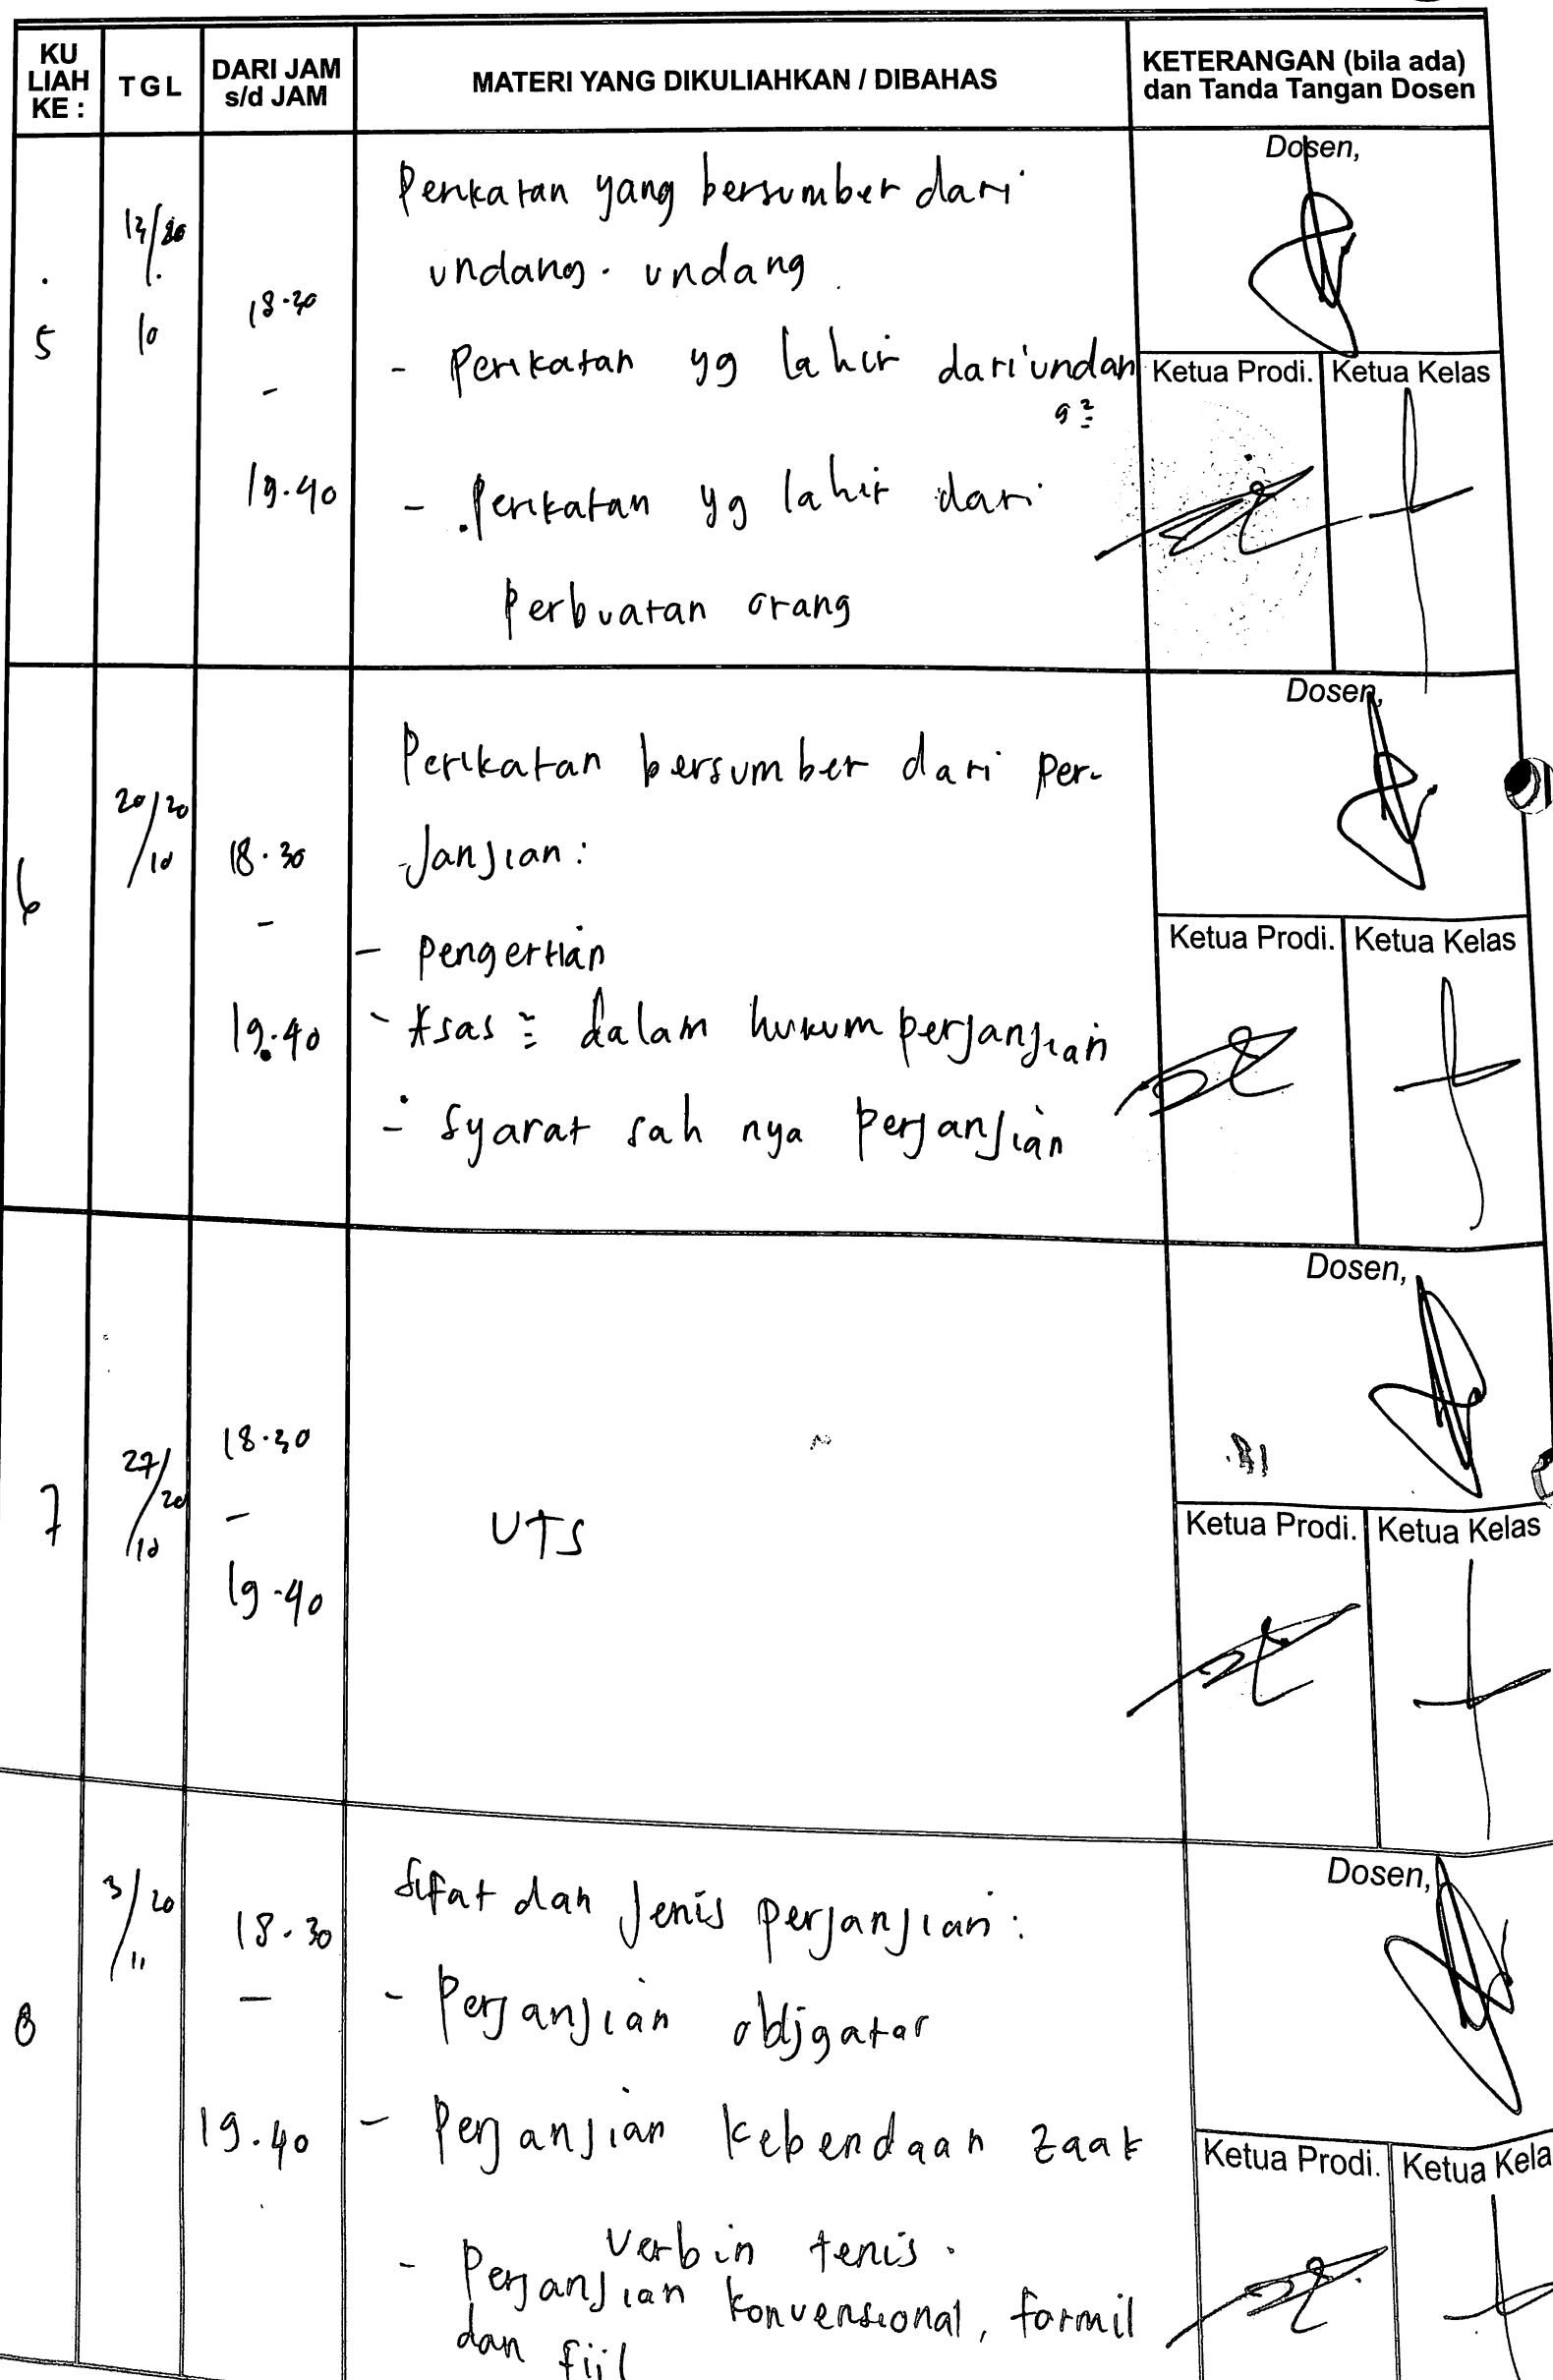 KU LIAH KE :
TGL
DARI JAM s/d JAM
MATERI YANG DIKULIAHKAN / DIBAHAS
KETERANGAN (bila ada) dan Tanda Tangan Dosen
5
10
18.30
-
19.40
Perikatan yang bersumber dari
undang - undang
- Perikatan yg lahir dari undan
g²
- Perikatan yg lahir dari
Perbuatan orang
Dosen,
Ketua Prodi.
Ketua Kelas
6
20/20
/10
18.30
-
19.40
Perikatan bersumber dari per-
Janjian :
- Pengertian
- Asas ² dalam hukum perjanjian
- Syarat sah nya Perjanjian
Dosen,
Ketua Prodi.
Ketua Kelas
7
27/20
/10
18.30
-
19.40
UTS
Dosen,
Ketua Prodi.
Ketua Kelas
8
3/20
/11
18.30
-
19.40
Sifat dan Jenis perjanjian :
- Perjanjian obligator
- Perjanjian kebendaan zaak
verbin tenis.
- Perjanjian konvensional, formil
dan fiil
Dosen,
Ketua Prodi.
Ketua Kela